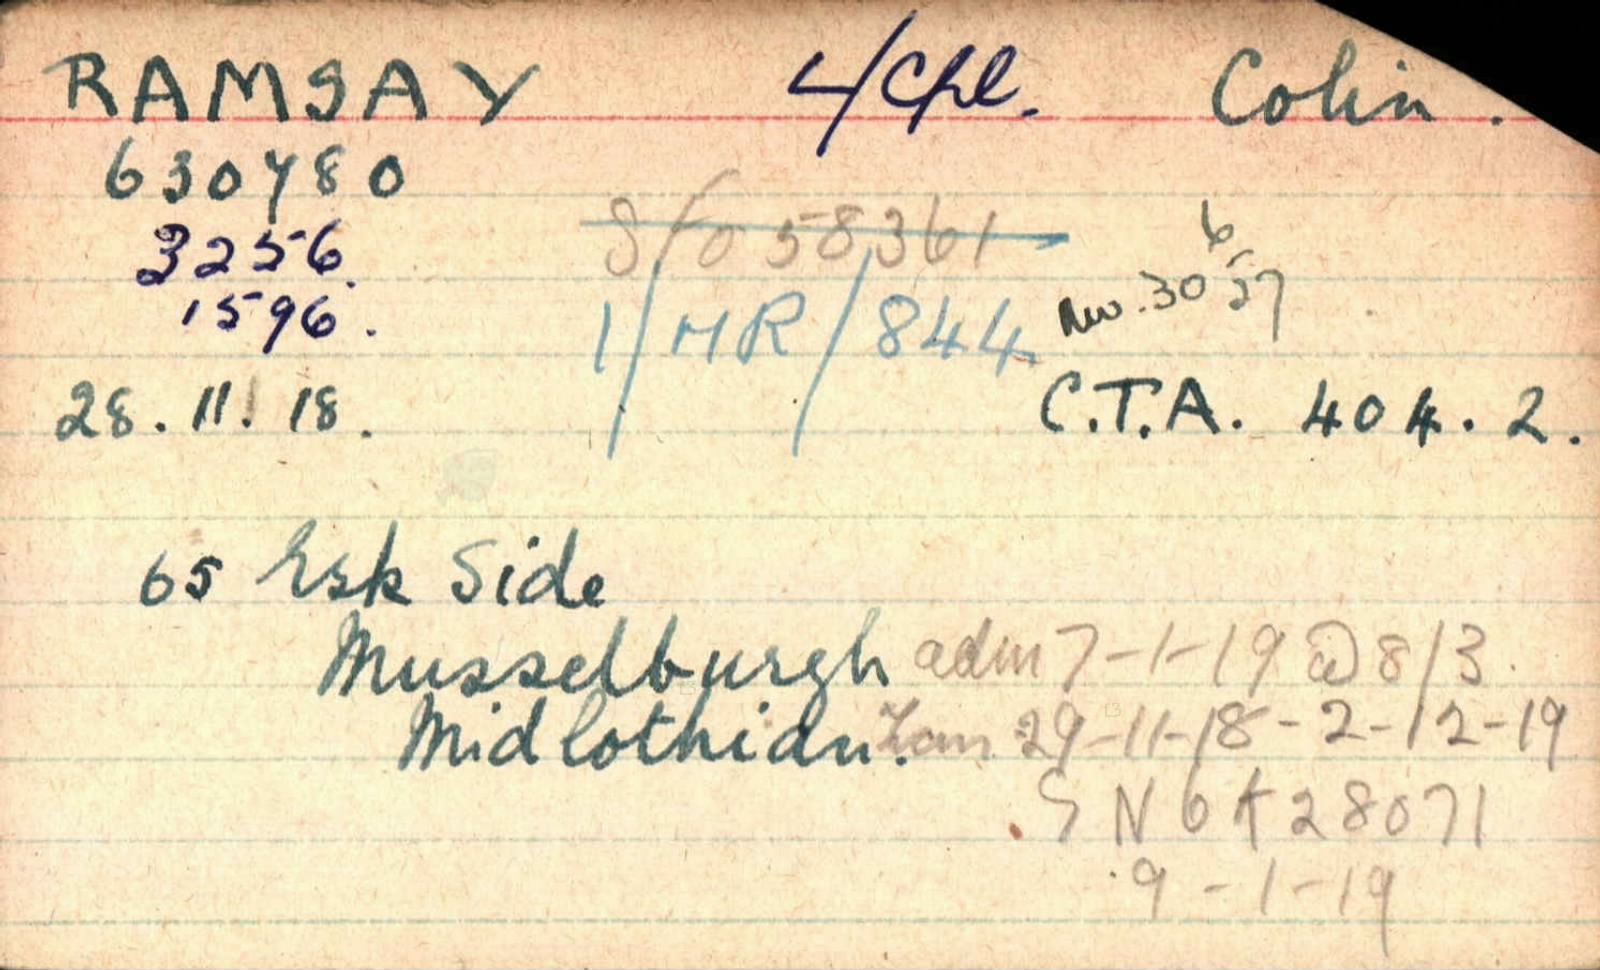 RAMSAY L/Cpl. Colin.
630780
3256.
1596.
S/o 58361
1/MR/844
Nov. 30 6/5/27
28.11.18.
C.T.A. 404.2.
65 Esk Side
Musselburgh
Midlothian.
adm 7-1-19 @ 8/3.
29-11-18-2-12-19
28071
9-1-19